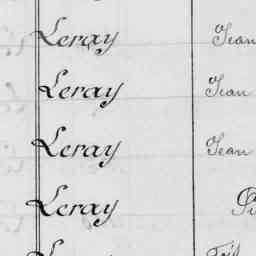 Leray Jean
Leray Jean
Leray Jean
Leray